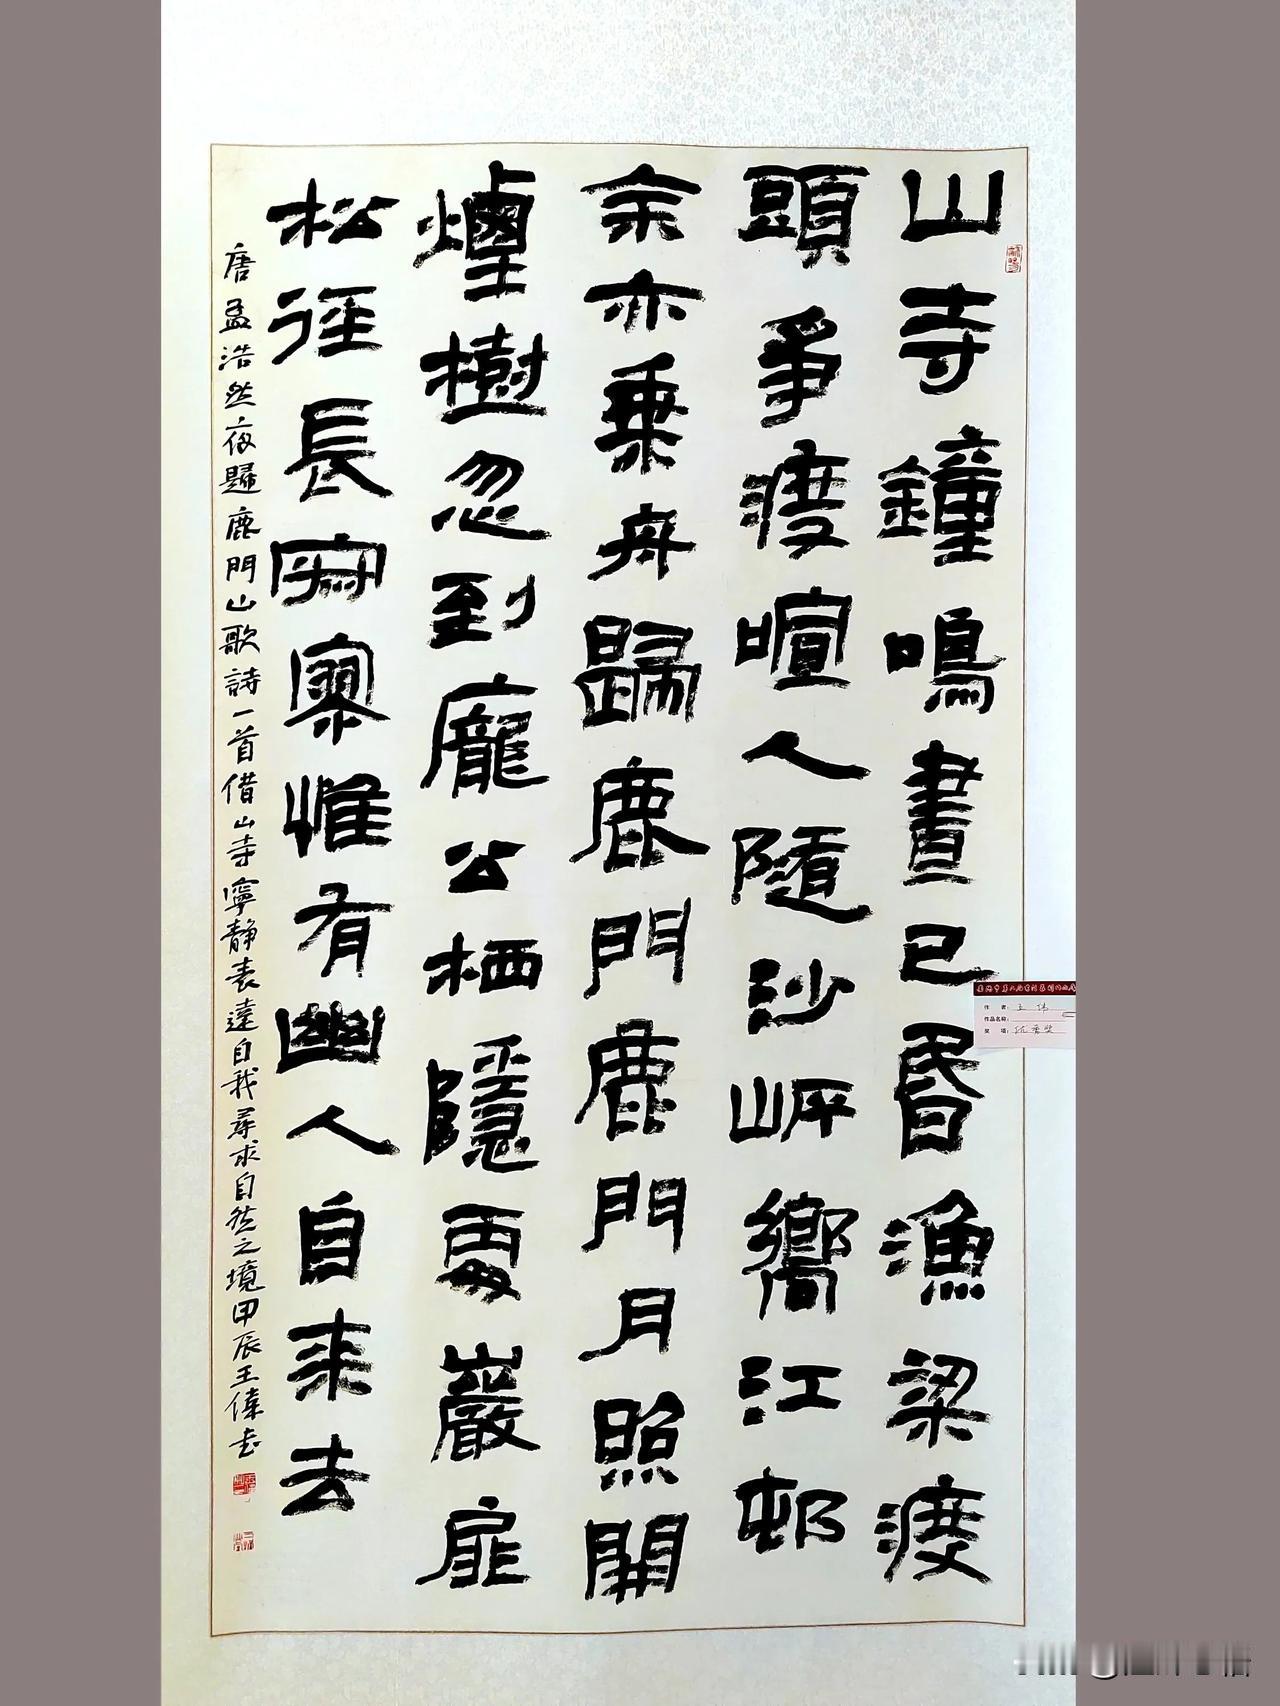 山寺鐘鳴晝已昏漁梁渡
頭爭渡喧人隨沙岸嚮江邨
余亦乗舟歸鹿門鹿門月照開
煙樹忽到龐公栖隱處巖扉
松徑長寂寞惟有幽人自来去
唐孟浩然夜歸鹿門山歌詩一首借山寺寧静表達自我尋求自然之境甲辰王偉書
作 者: 王伟
作品名称:
奖 项: 优秀奖